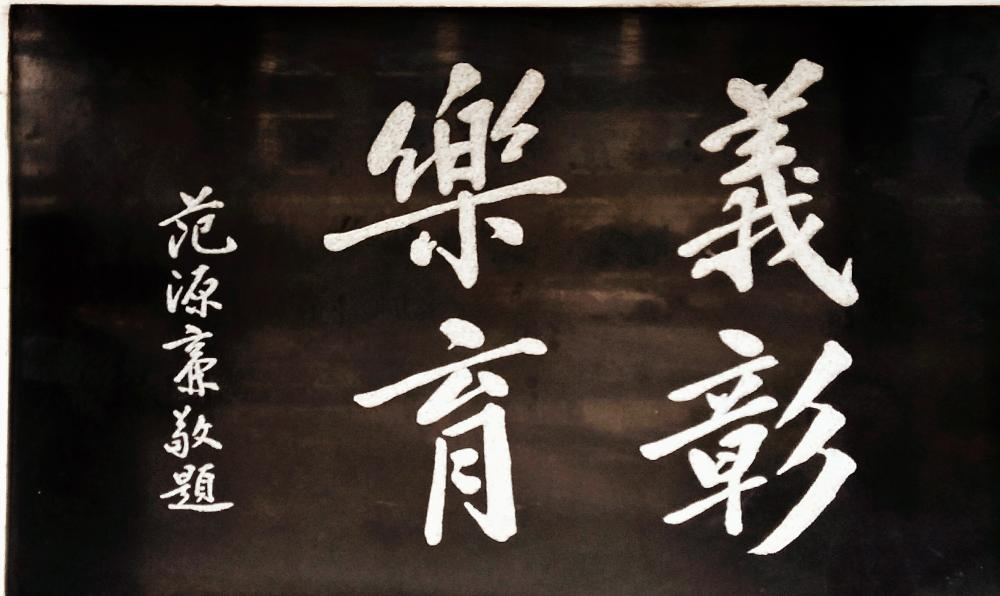 義彰
樂育
范源廉敬題